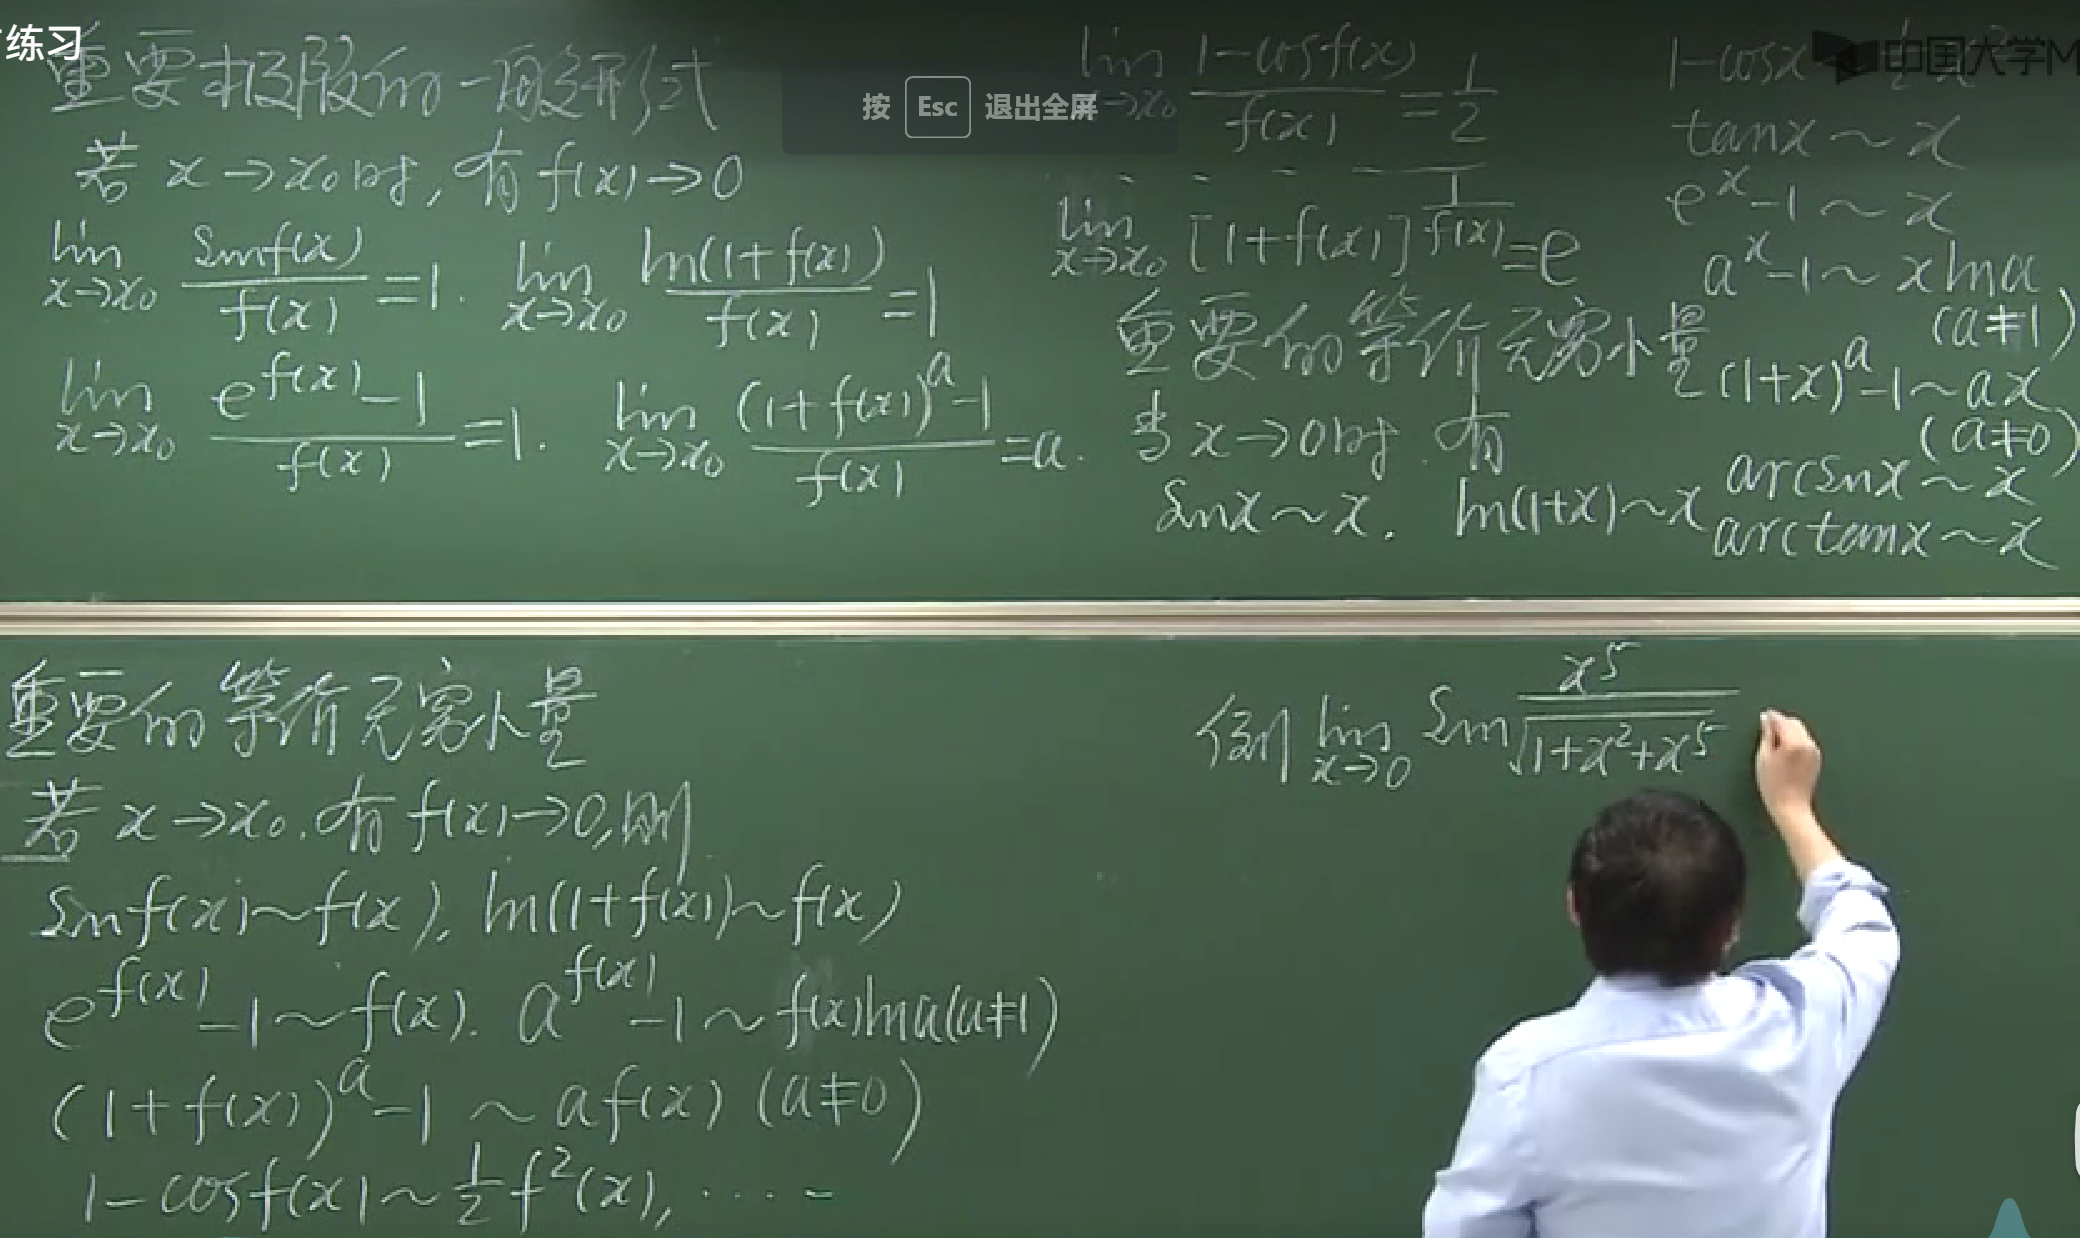 练习
按 Esc 退出全屏
中国大学M
重要极限的一般形式
若 x→x₀时, 有 f(x)→0
lim x→x₀ sinf(x)/f(x) = 1. lim x→x₀ ln(1+f(x))/f(x) = 1
lim x→x₀ (e^f(x) - 1)/f(x) = 1. lim x→x₀ ((1+f(x))^a - 1)/f(x) = a.
lim x→x₀ (1-cosf(x))/f(x) = 1/2
lim x→x₀ [1+f(x)]^(1/f(x)) = e
重要的等价无穷小量
当 x→0时. 有
sinx ~ x. ln(1+x) ~ x
1-cosx
tanx ~ x
e^x - 1 ~ x
a^x - 1 ~ xlna
(a≠1)
(1+x)^a - 1 ~ ax
(a≠0)
arcsinx ~ x
arctanx ~ x
重要的等价无穷小量
若 x→x₀. 有 f(x)→0, 则
sinf(x) ~ f(x), ln(1+f(x)) ~ f(x)
e^f(x) - 1 ~ f(x). a^f(x) - 1 ~ f(x)lna(a≠1)
(1+f(x))^a - 1 ~ af(x) (a≠0)
1-cosf(x) ~ 1/2 f²(x), ·····
例 lim x→0 sin x⁵/√(1+x²+x⁵)